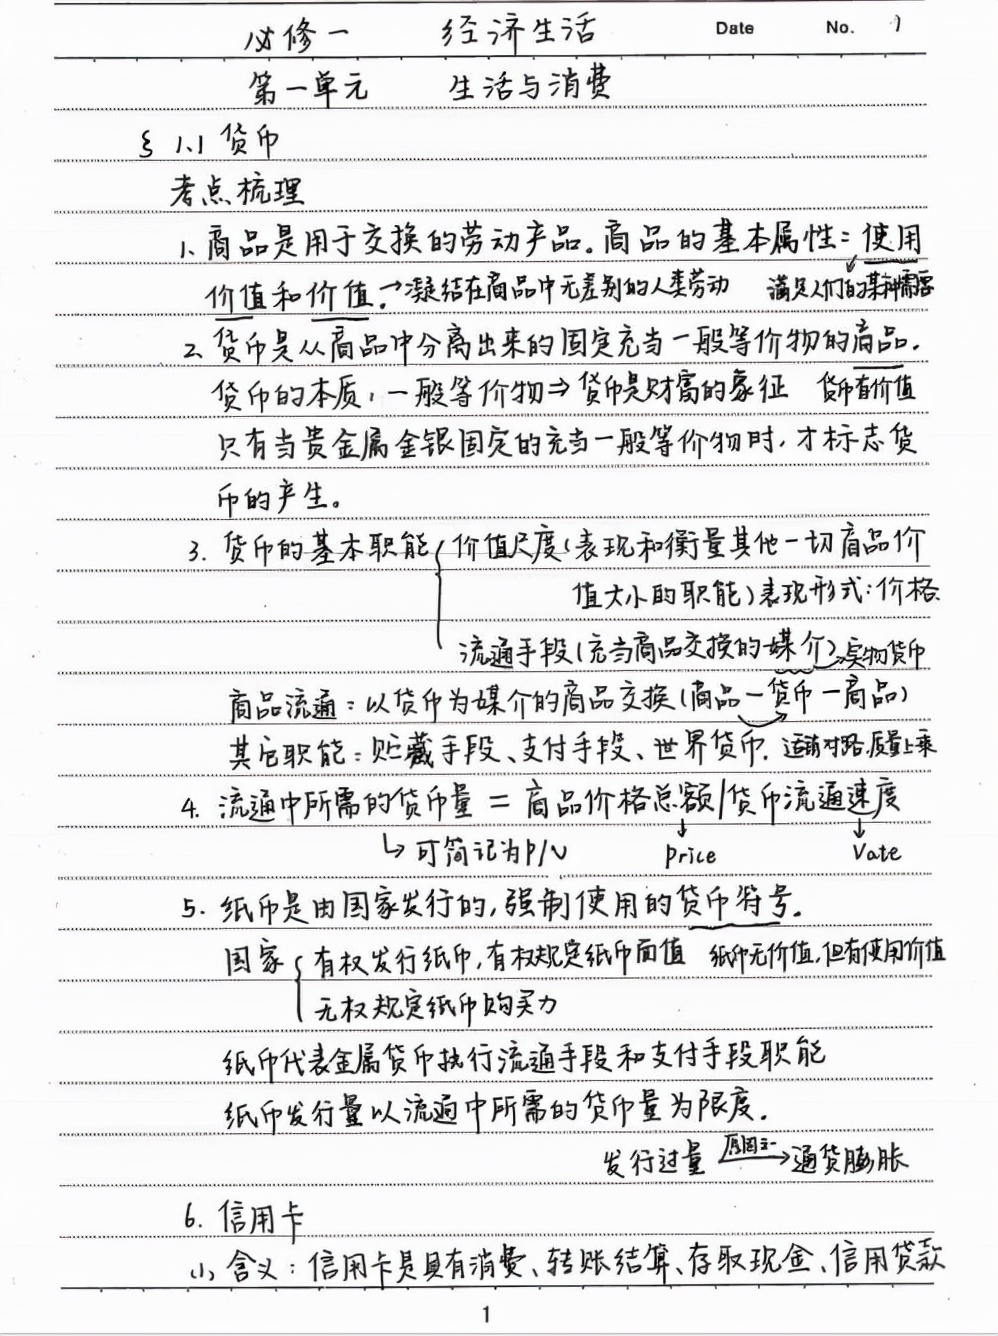 必修一 经济生活 Date No. 1
第一单元 生活与消费
§ 1.1 货币
考点梳理
1. 商品是用于交换的劳动产品。商品的基本属性：使用
价值和价值.→凝结在商品中无差别的人类劳动 满足人们的某种需要
2. 货币是从商品中分离出来的固定充当一般等价物的商品.
货币的本质：一般等价物⇒货币是财富的象征 货币有价值
只有当贵金属金银固定的充当一般等价物时，才标志货
币的产生。
3. 货币的基本职能{价值尺度(表现和衡量其他一切商品价
值大小的职能)表现形式：价格
流通手段(充当商品交换的媒介)→实物货币
商品流通：以货币为媒介的商品交换(商品—货币—商品)
其它职能：贮藏手段、支付手段、世界货币. 适销对路.质量上乘
4. 流通中所需的货币量 = 商品价格总额/货币流通速度
↳ 可简记为P/V ↓ price ↓ Vate
5. 纸币是由国家发行的,强制使用的货币符号.
国家{有权发行纸币,有权规定纸币面值 纸币无价值,但有使用价值
无权规定纸币购买力
纸币代表金属货币执行流通手段和支付手段职能
纸币发行量以流通中所需的货币量为限度.
发行过量 原因之一→通货膨胀
6. 信用卡
(1) 含义：信用卡是具有消费、转账结算、存取现金、信用贷款
1